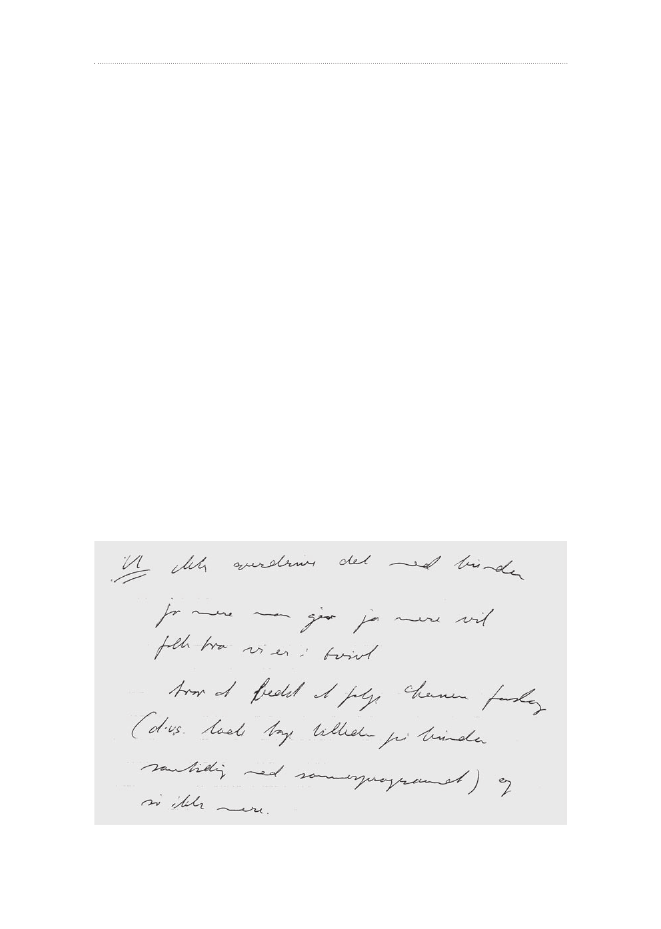 ikke overdrive det med kvinder
jo mere man gør jo mere vil
folk tro vi er i tvivl
tror at bedst at følge formen forslag
(d.v.s. lade tage billeder på kvinder
samtidig med sommerprogrammet) og
så ikke mere.